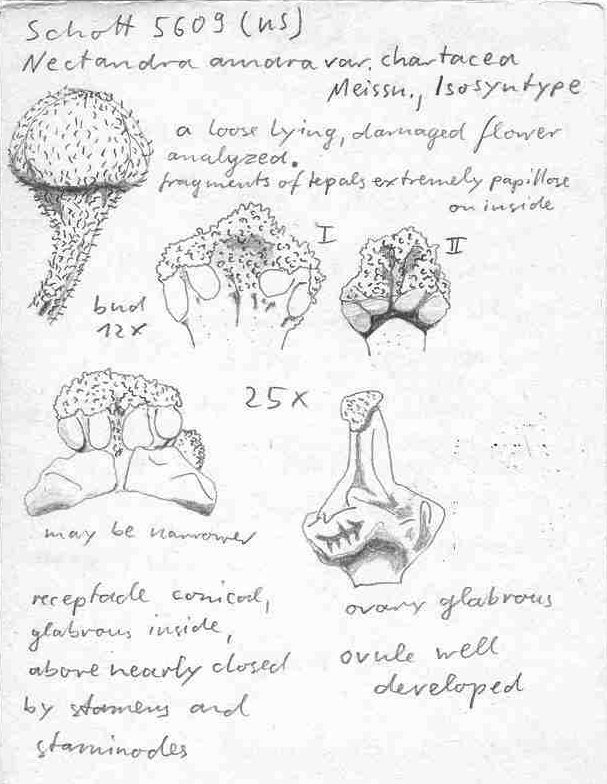 Schott 5609 (US)
Nectandra amara var. chartacea
Meissn., Isosyntype
a loose lying, damaged flower
analyzed.
fragments of tepals extremely papillose
on inside
I
II
bud
12x
25x
may be narrower
receptacle conical,
glabrous inside,
above nearly closed
by stamens and
staminodes
ovary glabrous
ovule well
developed